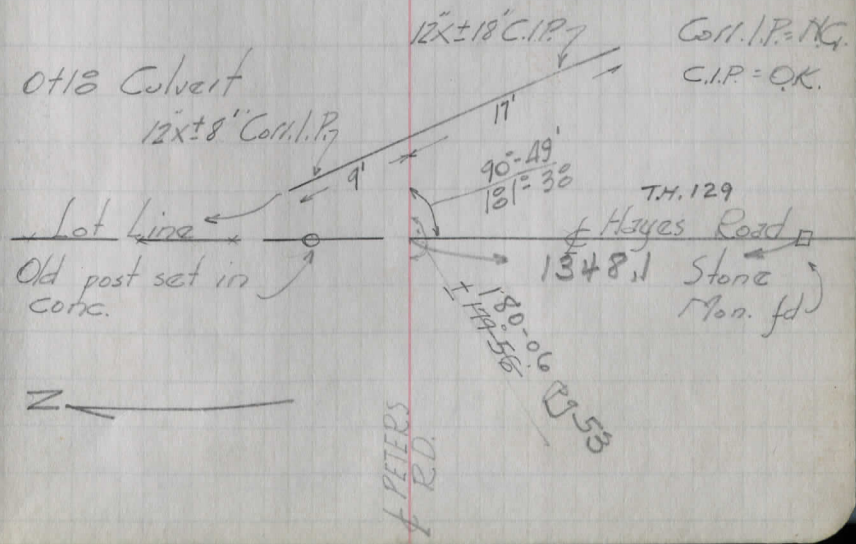 12"x±18" C.I.P.
Corr. I.P. = N.G.
C.I.P. = O.K.
0+18 Culvert
12"x±8" Corr. I.P.
17'
9'
90°-49'
181°-38
T.H. 129
Lot Line
℄ Hayes Road
1348.1
Old post set in
conc.
Stone
Mon. fd
180-06
± 179-56
53
N
PETERS
RD.